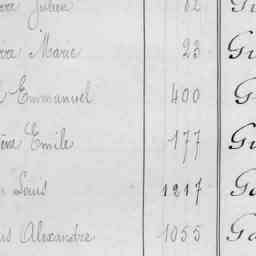 Julien 82 G
Marie 23 G
Emmanuel 400 G
Emile 177 G
Louis 1217 G
Alexandre 1055 G